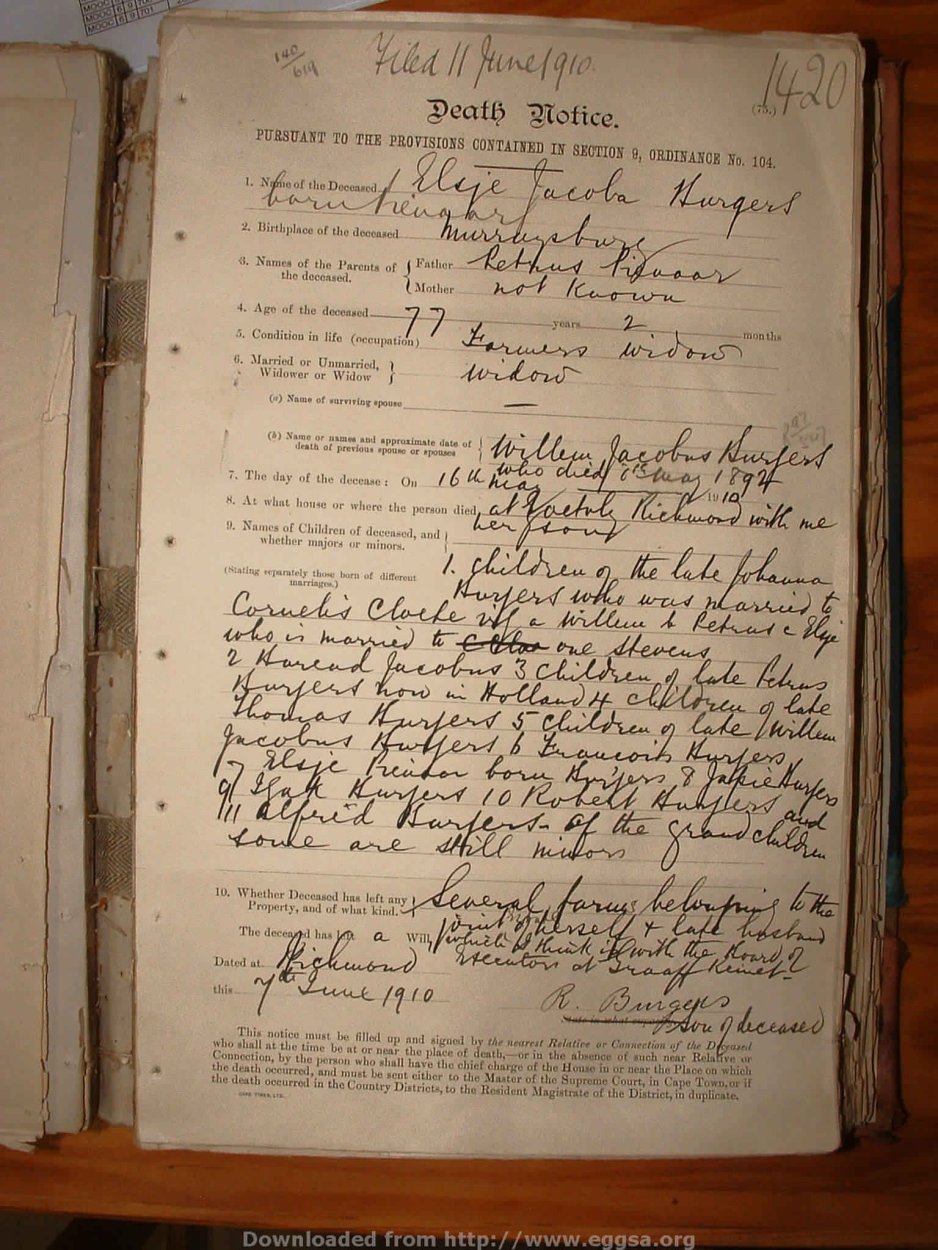 MOOC 6 9 701
140/619
Filed 11 June 1910.
1420
(75.)
Death Notice.
PURSUANT TO THE PROVISIONS CONTAINED IN SECTION 9, ORDINANCE No. 104.
1. Name of the Deceased Elsje Jacoba Burgers
born Pienaar
2. Birthplace of the deceased Murraysburg
3. Names of the Parents of the deceased. Father Petrus Pienaar
Mother not known
4. Age of the deceased 77 years 2 months
5. Condition in life (occupation) Farmers widow
6. Married or Unmarried, Widower or Widow widow
(a) Name of surviving spouse —
(b) Name or names and approximate date of death of previous spouse or spouses Willem Jacobus Burgers
who died May 189
7. The day of the decease: On 16th May 1910
8. At what house or where the person died at Richmond with me
her son
9. Names of Children of deceased, and whether majors or minors.
(Stating separately those born of different marriages.)
1. children of the late Johanna
Burgers who was married to
Cornelis Cloete viz a Willem b Petrus c Elsje
who is married to one Stevens
2 Barend Jacobus 3 children of late Petrus
Burgers now in Holland 4 children of late
Thomas Burgers 5 children of late Willem
Jacobus Burgers 6 Francois Burgers
7 Elsje Pienaar born Burgers 8 Japie Burgers
9 Izak Burgers 10 Robert Burgers and
11 Alfred Burgers - of the grand children
some are still minors
10. Whether Deceased has left any Property, and of what kind. Several farms belonging to the
joint estate of herself & late husband
The deceased has left a Will, which I think is with the Board of
Executors at Graaff Reinet
Dated at Richmond
this 7th June 1910
R. Burgers
State in what capacity
Son of deceased
This notice must be filled up and signed by the nearest Relative or Connection of the Deceased
who shall at the time be at or near the place of death,—or in the absence of such near Relative or
Connection, by the person who shall have the chief charge of the House in or near the Place on which
the death occurred, and must be sent either to the Master of the Supreme Court, in Cape Town, or if
the death occurred in the Country Districts, to the Resident Magistrate of the District, in duplicate.
CAPE TIMES, LTD.
Downloaded from http://www.eggsa.org